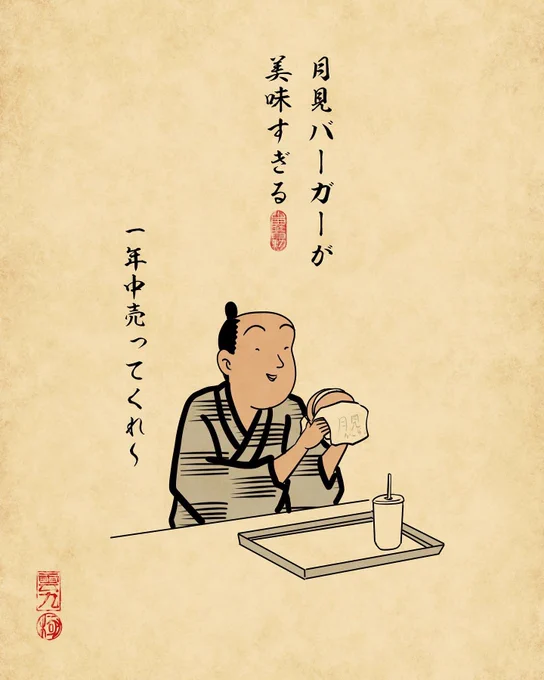 月見バーガーが
美味すぎる
一年中売ってくれ〜
月見